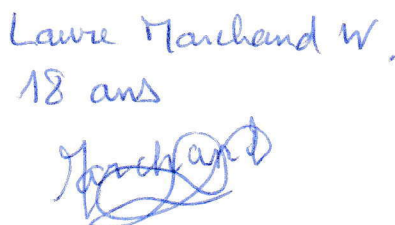 Laure Marchand W.
18 ans
Marchand